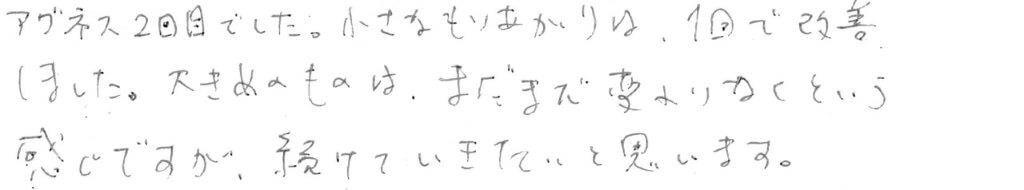 アグネス2回目でした。小さなもりあがりは、1回で改善
しました。大きめのものは、まだまだ変わりなくという
感じですが、続けていきたいと思います。